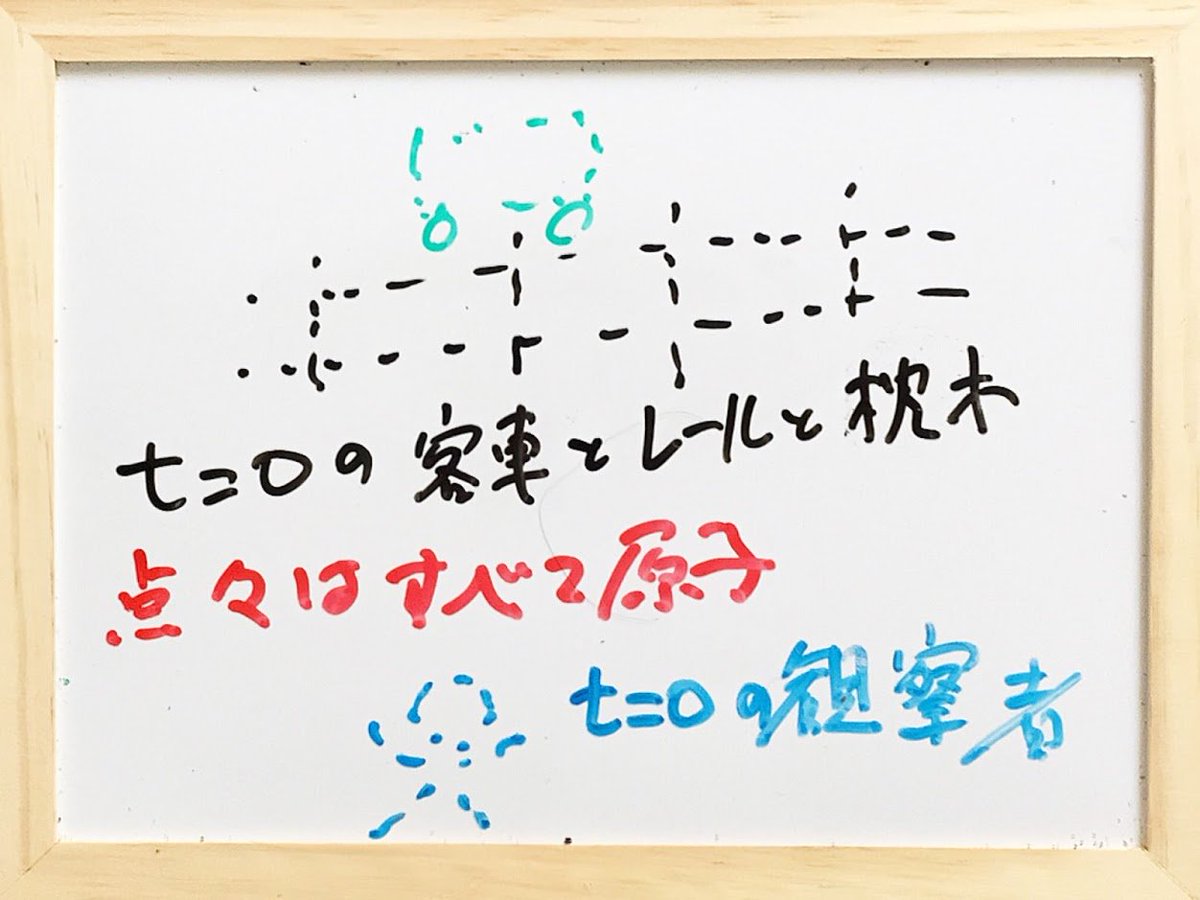 t=0の客車とレールと枕木
点々はすべて原子
t=0の観察者